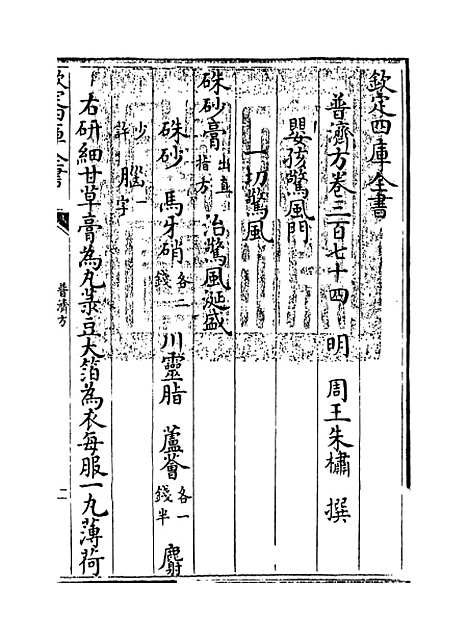 欽定四庫全書
普濟方卷三百七十四 明 周王朱橚 撰
嬰孩驚風門
一切驚風
硃砂膏出直指方 治驚風涎盛
硃砂 馬牙硝各二錢 川靈脂 蘆薈各一錢半 麝
少許 腦一字
右研細甘草膏為丸菉豆大箔為衣每服一丸薄荷
欽定四庫全書
普濟方
二